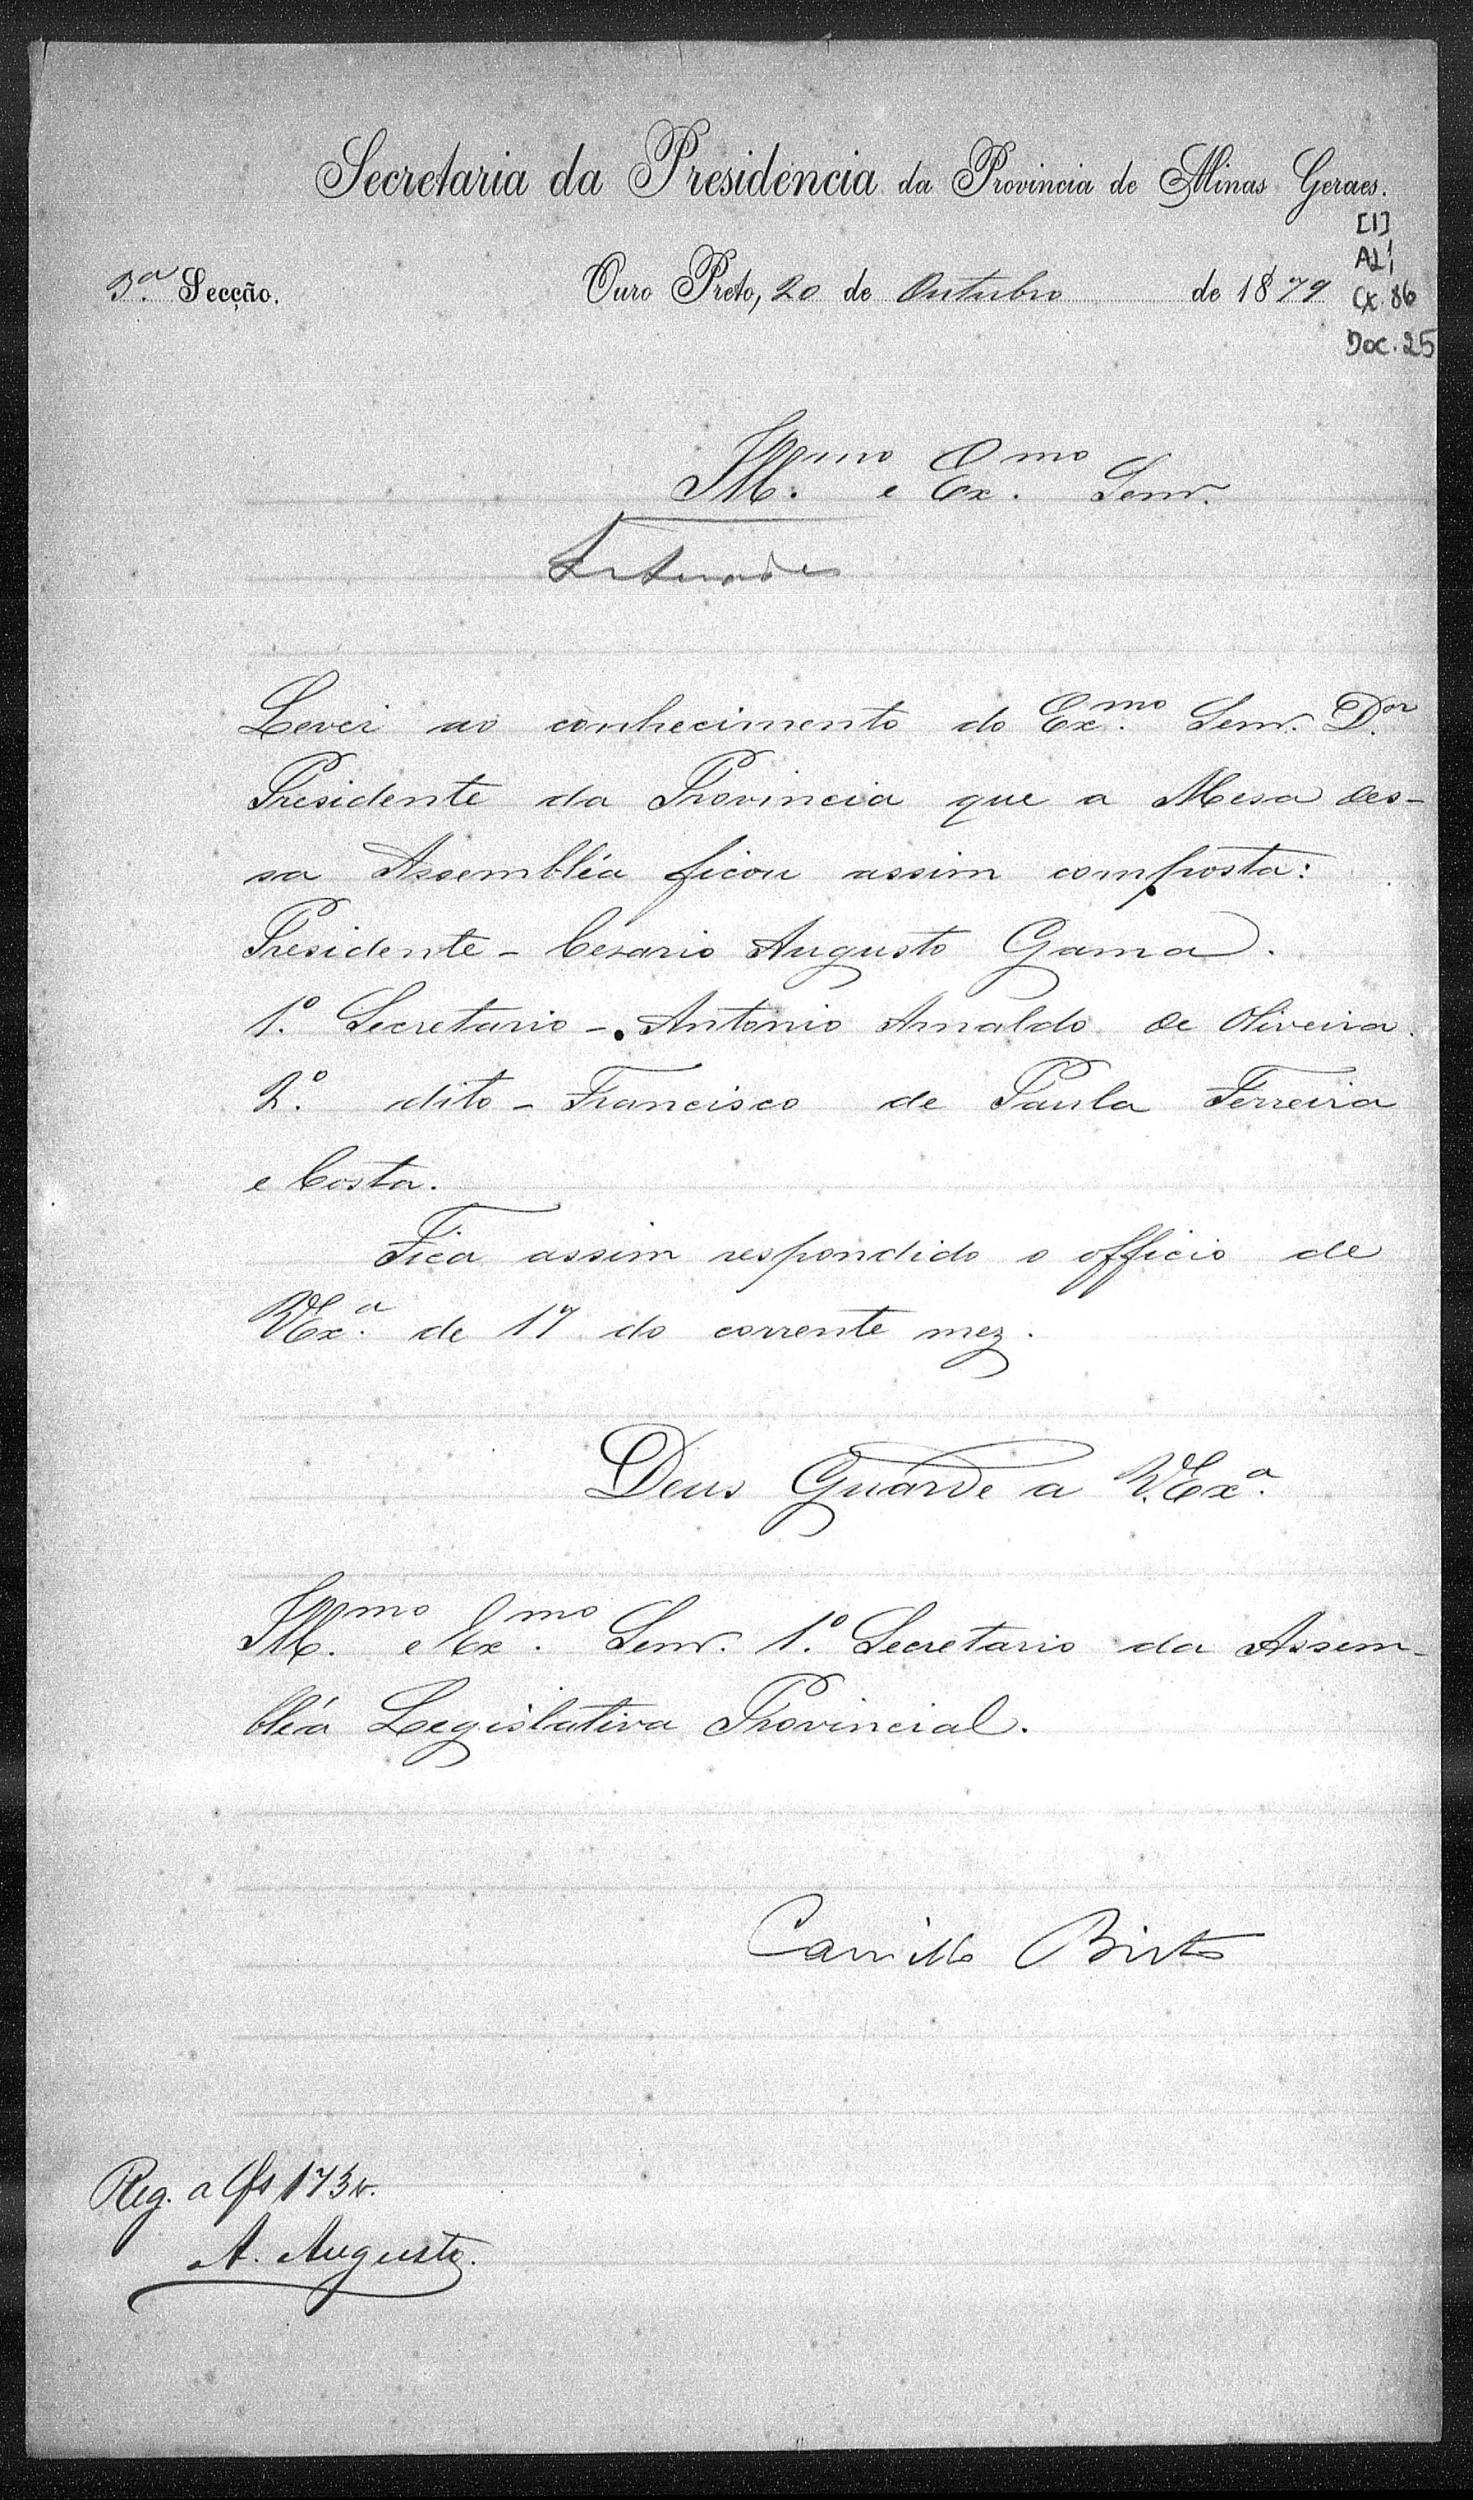 Secretaria da Presidencia da Provincia de Minas Geraes.
[1]
AL1
Cx. 86
Doc. 25
3.ª Secção.
Ouro Preto, 20 de Outubro de 1879
Ill.mo e Ex.mo Senr.
Levei ao conhecimento do Ex.mo Senr. D.or
Presidente da Provincia que a Mesa des-
sa Assembléa ficou assim composta:
Presidente - Cesario Augusto Gama.
1.º Secretario - Antonio Arnaldo de Oliveira.
2.º dito - Francisco de Paula Ferreira
e Costa.
Fica assim respondido o officio de
V.Ex.ª de 17 do corrente mez.
Deus Guarde a V.Ex.ª
Ill.mo e Ex.mo Senr. 1.º Secretario da Assem-
bléa Legislativa Provincial.
Camillo Brito
Reg. a fs 173 v.
A. Augusto.